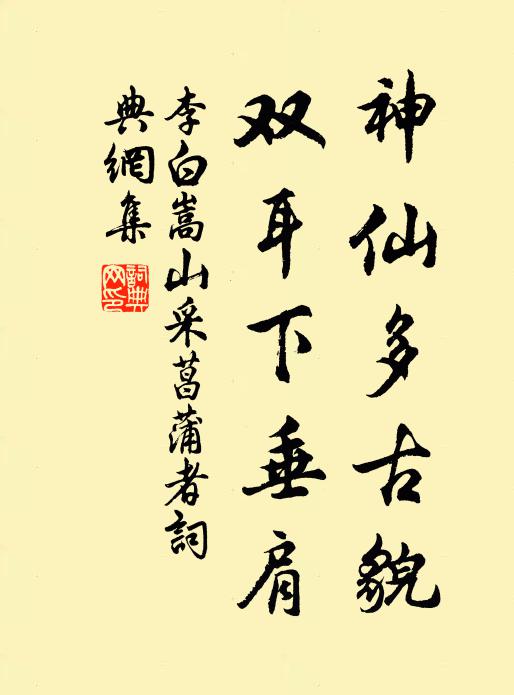 神仙多古貌
双耳下垂肩
李白嵩山采菖蒲者詞
典網集
詞典网印